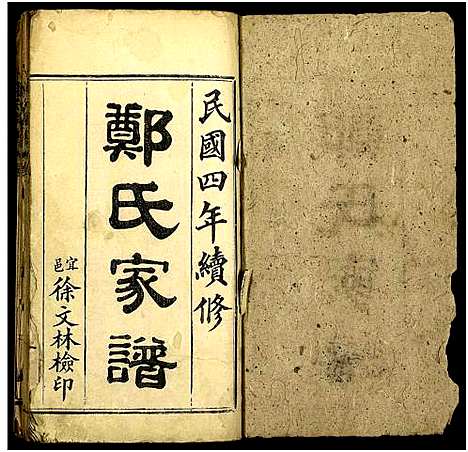 民國四年續修
鄭氏家譜
宜邑徐文林檢印